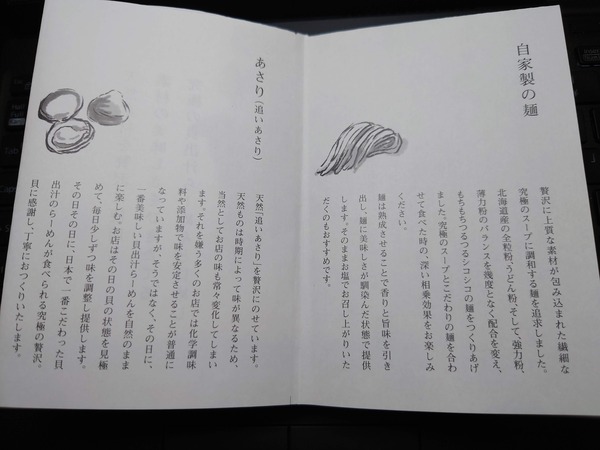 自家製の麺
贅沢に上質な素材が包み込まれた繊細な
究極のスープに調和する麺を追求しました。
北海道産の全粒粉、うどん粉、そして、強力粉、
薄力粉のバランスを幾度となく配合を変え、
もちもちつるつるシコシコの麺をつくりあげ
ました。究極のスープとこだわりの麺を合わ
せて食べた時の、深い相乗効果をお楽しみ
ください。
麺は熟成させることで香りと旨味を引き
出し、麺に美味しさが馴染んだ状態で提供
します。そのままお塩でお召し上がりいた
だくのもおすすめです。
あさり（追いあさり）
天然「追いあさり」を贅沢にのせています。
天然ものは時期によって味が異なるため、
当然としてお店の味も常々変化してしまい
ます。それを嫌う多くのお店では化学調味
料や添加物で味を安定させることが普通に
なっていますが、そうではなく、その日に、
一番美味しい貝出汁らーめんを自然のまま
に楽しむ。お店はその日の貝の状態を見極
めて、毎日少しずつ味を調整し提供します。
その日その日に、日本で一番こだわった貝
出汁のらーめんが食べられる究極の贅沢。
貝に感謝し、丁寧におつくりいたします。